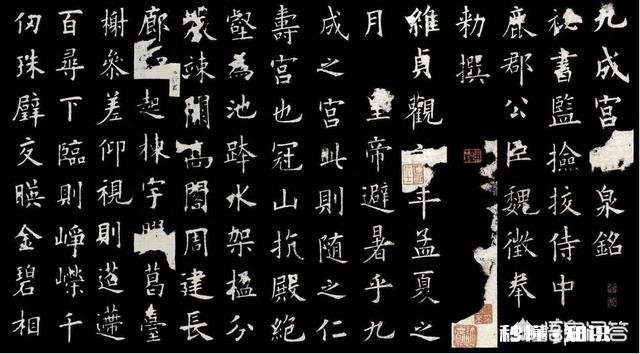 九成宮泉銘
秘書監撿挍侍中
鹿郡公臣魏徵奉
勑撰
維貞觀年孟夏之
月皇帝避暑乎九
成之宮此則随之仁
壽宮也冠山抗殿絕
壑為池跨水架楹分
竦闕高閣周建長
廊起棟宇葛臺
榭參差仰視則迢遰
百尋下臨則崢嶸千
仞珠璧交暎金碧相
秒懂知识